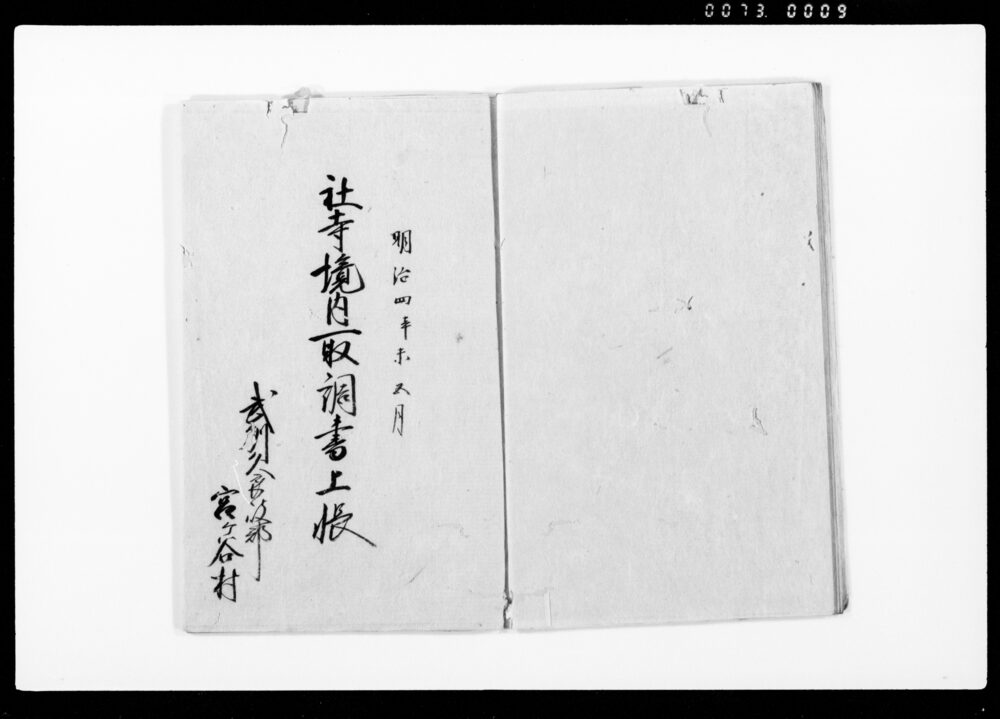 0073. 0009
明治四年未五月
社寺境内取調書上帳
武州久良岐郡
宮ヶ谷村